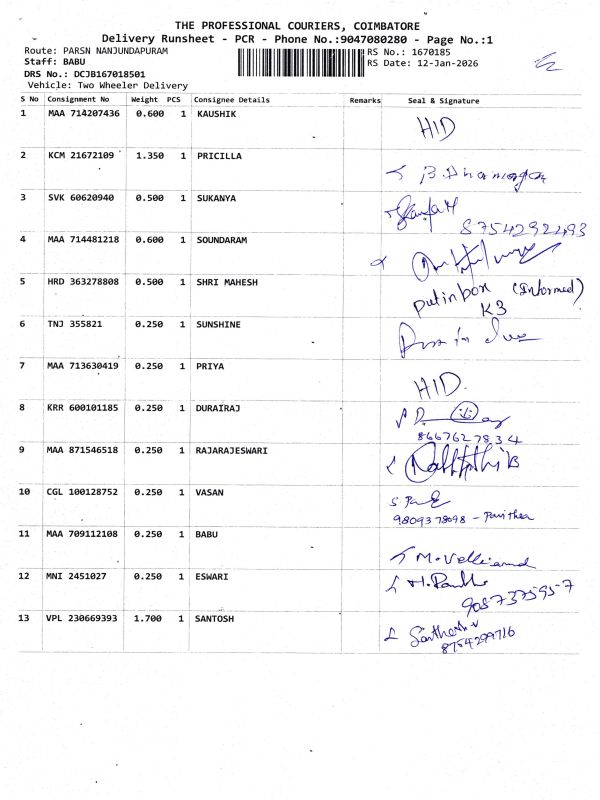 THE PROFESSIONAL COURIERS, COIMBATORE
Delivery Runsheet - PCR - Phone No.:9047080280 - Page No.:1
Route: PARSN NANJUNDAPURAM RS No.: 1670185
Staff: BABU RS Date: 12-Jan-2026
DRS No.: DCJB167018501
Vehicle: Two Wheeler Delivery
S No Consignment No Weight PCS Consignee Details Remarks Seal & Signature
1 MAA 714207436 0.600 1 KAUSHIK
HID
2 KCM 21672109 1.350 1 PRICILLA
3 SVK 60620940 0.500 1 SUKANYA
8754292493
4 MAA 714481218 0.600 1 SOUNDARAM
5 HRD 363278808 0.500 1 SHRI MAHESH
Put in box (Informed)
K3
6 TNJ 355821 0.250 1 SUNSHINE
7 MAA 713630419 0.250 1 PRIYA
HID.
8 KRR 600101185 0.250 1 DURAIRAJ
8667627834
9 MAA 871546518 0.250 1 RAJARAJESWARI
10 CGL 100128752 0.250 1 VASAN
9809378098 - Pavithra
11 MAA 709112108 0.250 1 BABU
12 MNI 2451027 0.250 1 ESWARI
9087375957
13 VPL 230669393 1.700 1 SANTOSH
Santhosh
8754299716